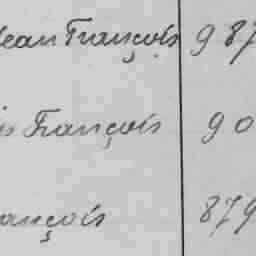 Jean François 987
François 90
ançois 879